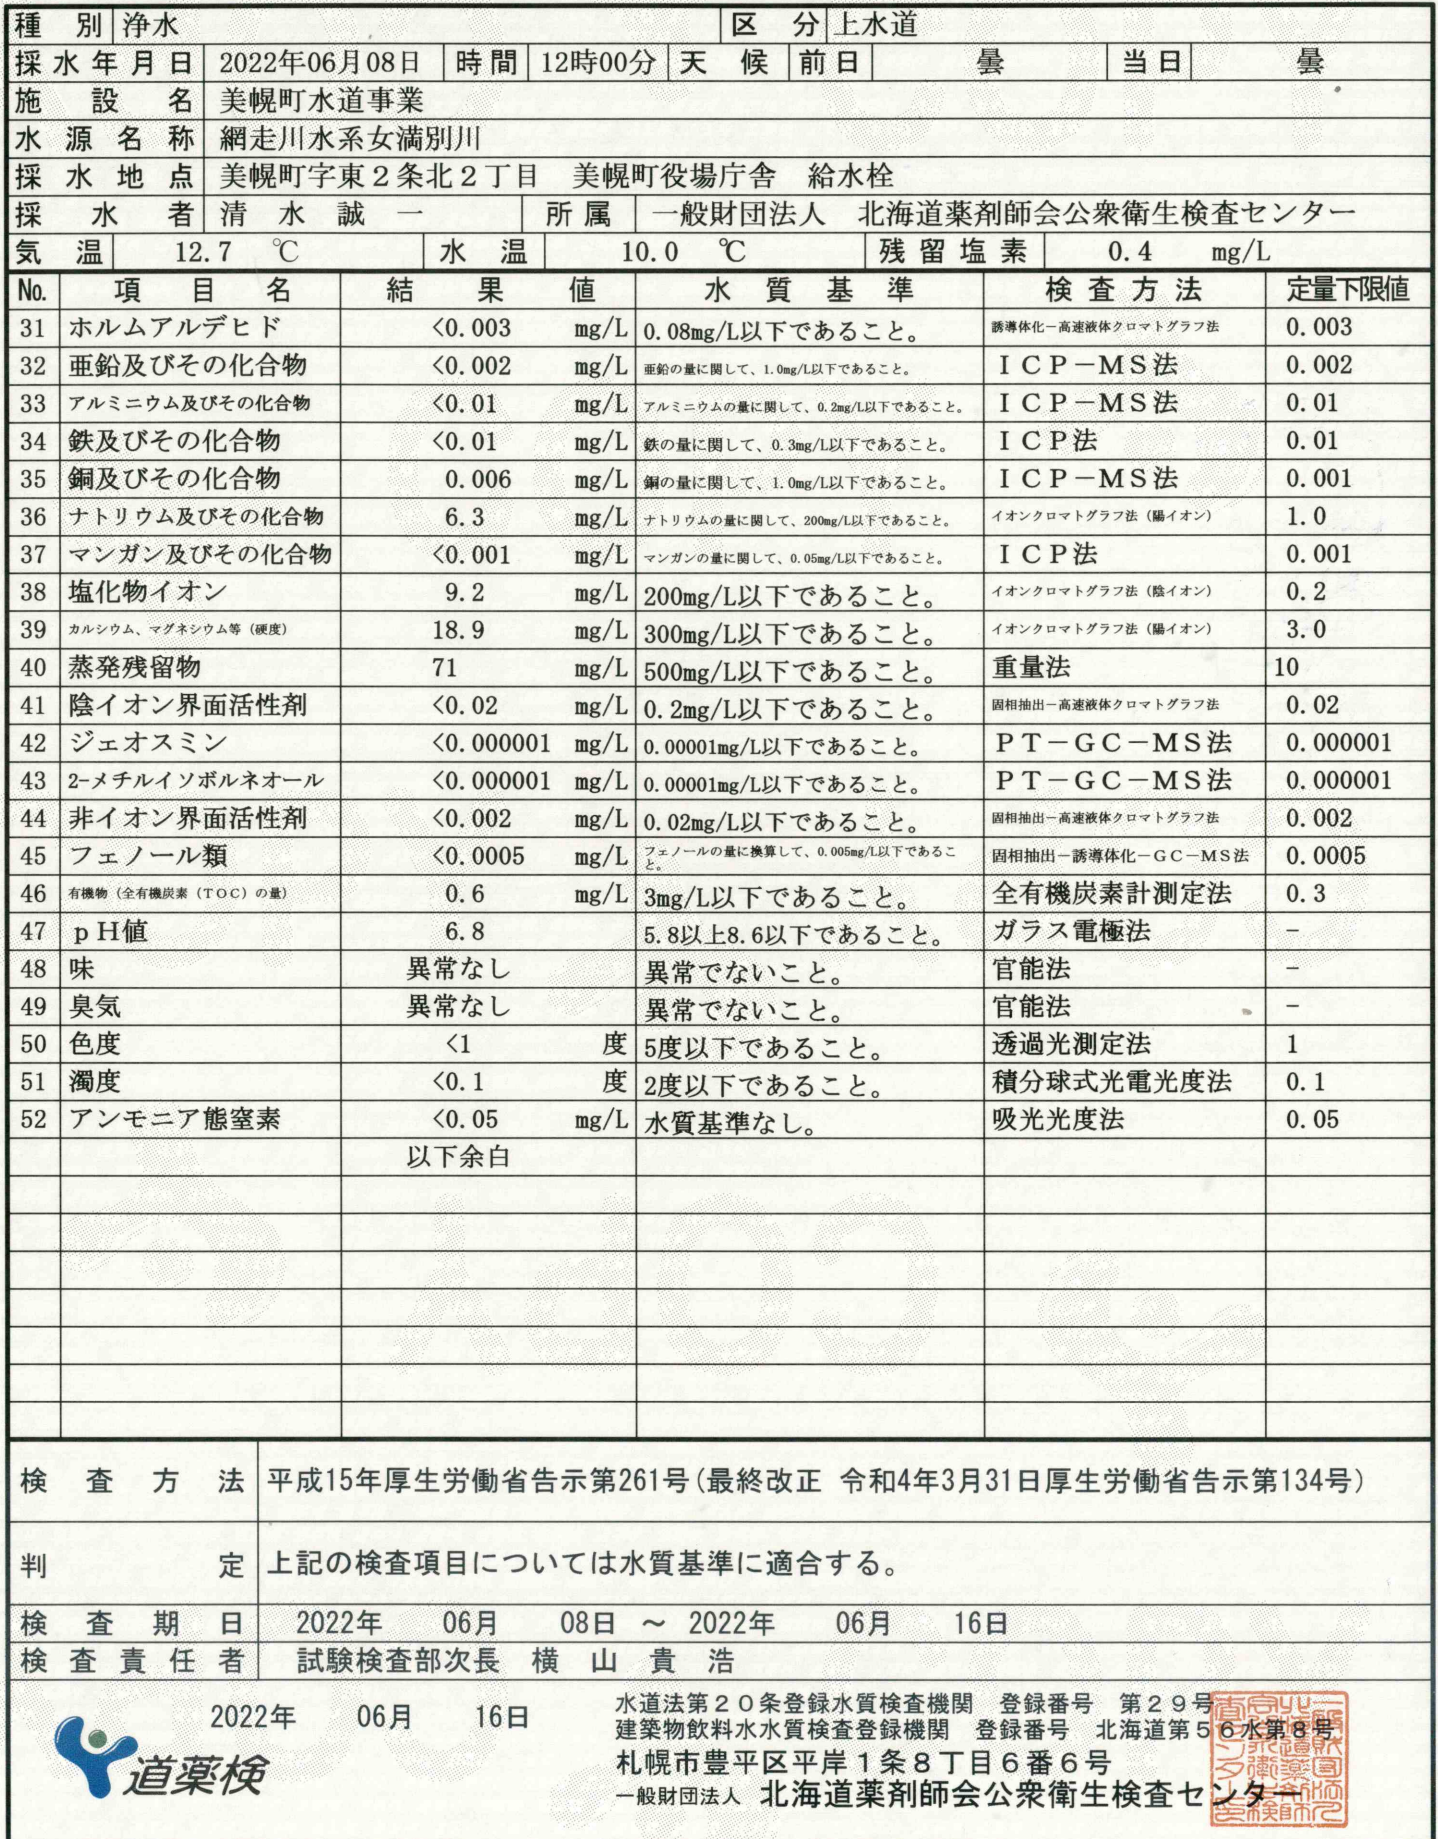 種別 浄水 区分 上水道
採水年月日 2022年06月08日 時間 12時00分 天候 前日 曇 当日 曇
施設名 美幌町水道事業
水源名称 網走川水系女満別川
採水地点 美幌町字東２条北２丁目 美幌町役場庁舎 給水栓
採水者 清水誠一 所属 一般財団法人 北海道薬剤師会公衆衛生検査センター
気温 12.7 ℃ 水温 10.0 ℃ 残留塩素 0.4 mg/L
No. 項目名 結果値 水質基準 検査方法 定量下限値
31 ホルムアルデヒド <0.003 mg/L 0.08mg/L以下であること。 誘導体化－高速液体クロマトグラフ法 0.003
32 亜鉛及びその化合物 <0.002 mg/L 亜鉛の量に関して、1.0mg/L以下であること。 ＩＣＰ－ＭＳ法 0.002
33 アルミニウム及びその化合物 <0.01 mg/L アルミニウムの量に関して、0.2mg/L以下であること。 ＩＣＰ－ＭＳ法 0.01
34 鉄及びその化合物 <0.01 mg/L 鉄の量に関して、0.3mg/L以下であること。 ＩＣＰ法 0.01
35 銅及びその化合物 0.006 mg/L 銅の量に関して、1.0mg/L以下であること。 ＩＣＰ－ＭＳ法 0.001
36 ナトリウム及びその化合物 6.3 mg/L ナトリウムの量に関して、200mg/L以下であること。 イオンクロマトグラフ法（陽イオン） 1.0
37 マンガン及びその化合物 <0.001 mg/L マンガンの量に関して、0.05mg/L以下であること。 ＩＣＰ法 0.001
38 塩化物イオン 9.2 mg/L 200mg/L以下であること。 イオンクロマトグラフ法（陰イオン） 0.2
39 カルシウム、マグネシウム等（硬度） 18.9 mg/L 300mg/L以下であること。 イオンクロマトグラフ法（陽イオン） 3.0
40 蒸発残留物 71 mg/L 500mg/L以下であること。 重量法 10
41 陰イオン界面活性剤 <0.02 mg/L 0.2mg/L以下であること。 固相抽出－高速液体クロマトグラフ法 0.02
42 ジェオスミン <0.000001 mg/L 0.00001mg/L以下であること。 ＰＴ－ＧＣ－ＭＳ法 0.000001
43 2-メチルイソボルネオール <0.000001 mg/L 0.00001mg/L以下であること。 ＰＴ－ＧＣ－ＭＳ法 0.000001
44 非イオン界面活性剤 <0.002 mg/L 0.02mg/L以下であること。 固相抽出－高速液体クロマトグラフ法 0.002
45 フェノール類 <0.0005 mg/L フェノールの量に換算して、0.005mg/L以下であること。 固相抽出－誘導体化－ＧＣ－ＭＳ法 0.0005
46 有機物（全有機炭素（ＴＯＣ）の量） 0.6 mg/L 3mg/L以下であること。 全有機炭素計測定法 0.3
47 ｐＨ値 6.8 5.8以上8.6以下であること。 ガラス電極法 －
48 味 異常なし 異常でないこと。 官能法 －
49 臭気 異常なし 異常でないこと。 官能法 －
50 色度 <1 度 5度以下であること。 透過光測定法 1
51 濁度 <0.1 度 2度以下であること。 積分球式光電光度法 0.1
52 アンモニア態窒素 <0.05 mg/L 水質基準なし。 吸光光度法 0.05
以下余白
検査方法 平成15年厚生労働省告示第261号(最終改正 令和4年3月31日厚生労働省告示第134号)
判定 上記の検査項目については水質基準に適合する。
検査期日 2022年 06月 08日 ～ 2022年 06月 16日
検査責任者 試験検査部次長 横山貴浩
2022年 06月 16日
水道法第２０条登録水質検査機関 登録番号 第２９号
建築物飲料水水質検査登録機関 登録番号 北海道第５６水第８号
札幌市豊平区平岸１条８丁目６番６号
一般財団法人 北海道薬剤師会公衆衛生検査センター
道薬検